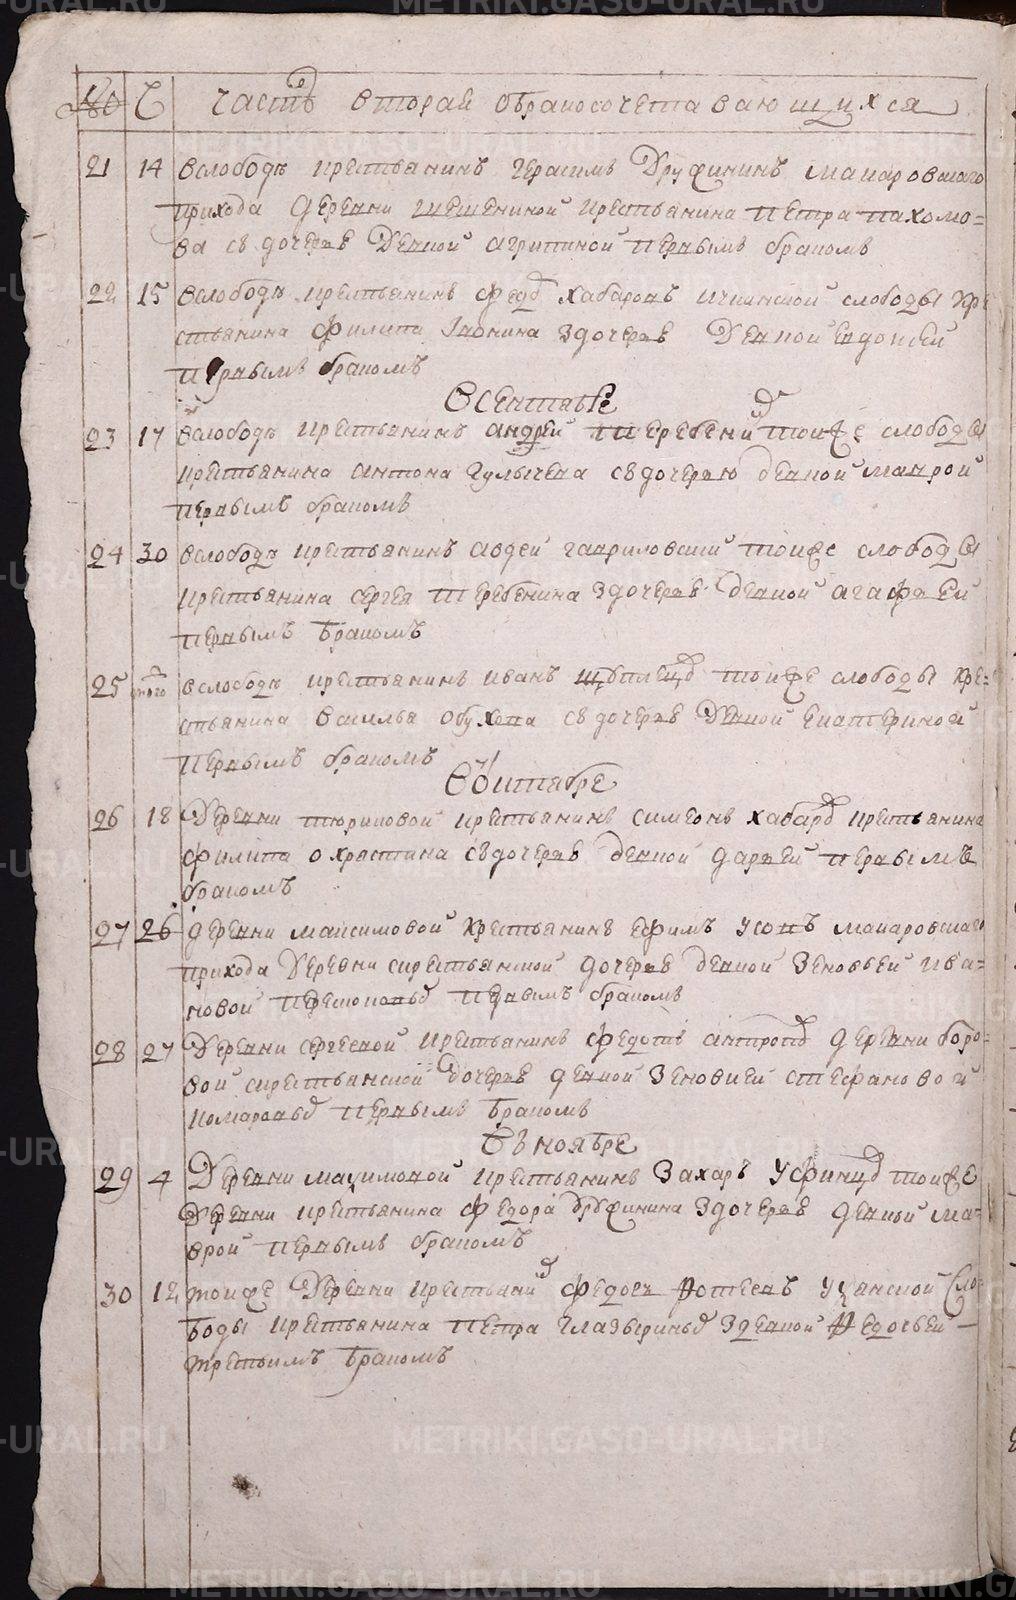 № Ч часть вторая о бракосочетавающихся
21 14 вслободѣ крестьянинъ герасимъ Дружининъ макаровскаго
прихода деревни крестьянина петра пахомо=
ва съ дочерью Девкой агрипиной первымъ бракомъ
22 15 вслободѣ крестьянинъ федо хабаровъ слободы кре
стьянина филипа здочерью Девкой евдокией
первымъ бракомъ
Всентябре
23 17 вслободѣ крестьянинъ андрей теребенин тоиже слободы
крестьянина антона гулычева съдочерью девкой маврой
первымъ бракомъ
24 30 вслободѣ крестьянинъ авдей гавриловский тоиже слободы
крестьянина сергея теребенина здочерью девкой агафьей
первымъ бракомъ
25 того вслободѣ крестьянинъ иванъ тоиже слободы кре=
стьянина василья обухова съдочерью Девкой екатериной
первымъ бракомъ
Воктябре
26 18 Деревни тюриковой крестьянинъ симеонъ хабаров крестьянина
филипа охрястина съдочерью девкой дарьей первымъ
бракомъ
27 26 деревни максимовой крестьянинъ ефимъ усовъ макаровскаго
прихода Деревни скрестьянской дочерью девкой зеновьей ива=
новой первымъ бракомъ
28 27 Деревни сергеевой крестьянинъ федотъ антропов деревни боро=
вой скрестьянской дочерью девкой зеновией стефановой
комаровых первымъ бракомъ
Въ ноябре
29 4 Деревни максимовой крестьянинъ захаръ тоиже
Деревни крестьянина федора дружинина здочерью девкой ма=
врой первымъ бракомъ
30 12 тоиже Деревни крестьянин федосей фотеевъ уксянской сло=
боды крестьянина петра глазыриных здевкой федосьей
третьимъ бракомъ
METRIKI.GASO-URAL.RU